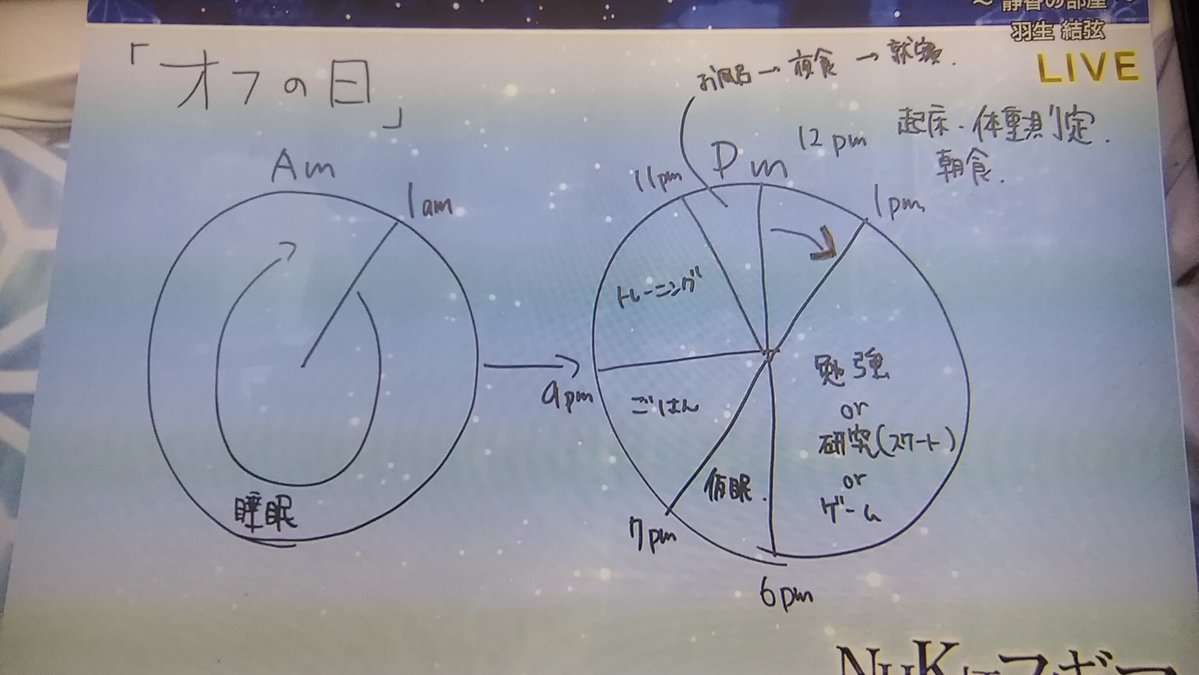 ～ 静香の部屋 ～
羽生 結弦
LIVE
「オフの日」
お風呂→夜食→就寝.
起床・体重測定.
朝食.
Am
1am
Pm
12pm
11pm
1pm
トレーニング
9pm
ごはん
仮眠.
7pm
6pm
勉強
or
研究(スケート)
or
ゲーム
睡眠